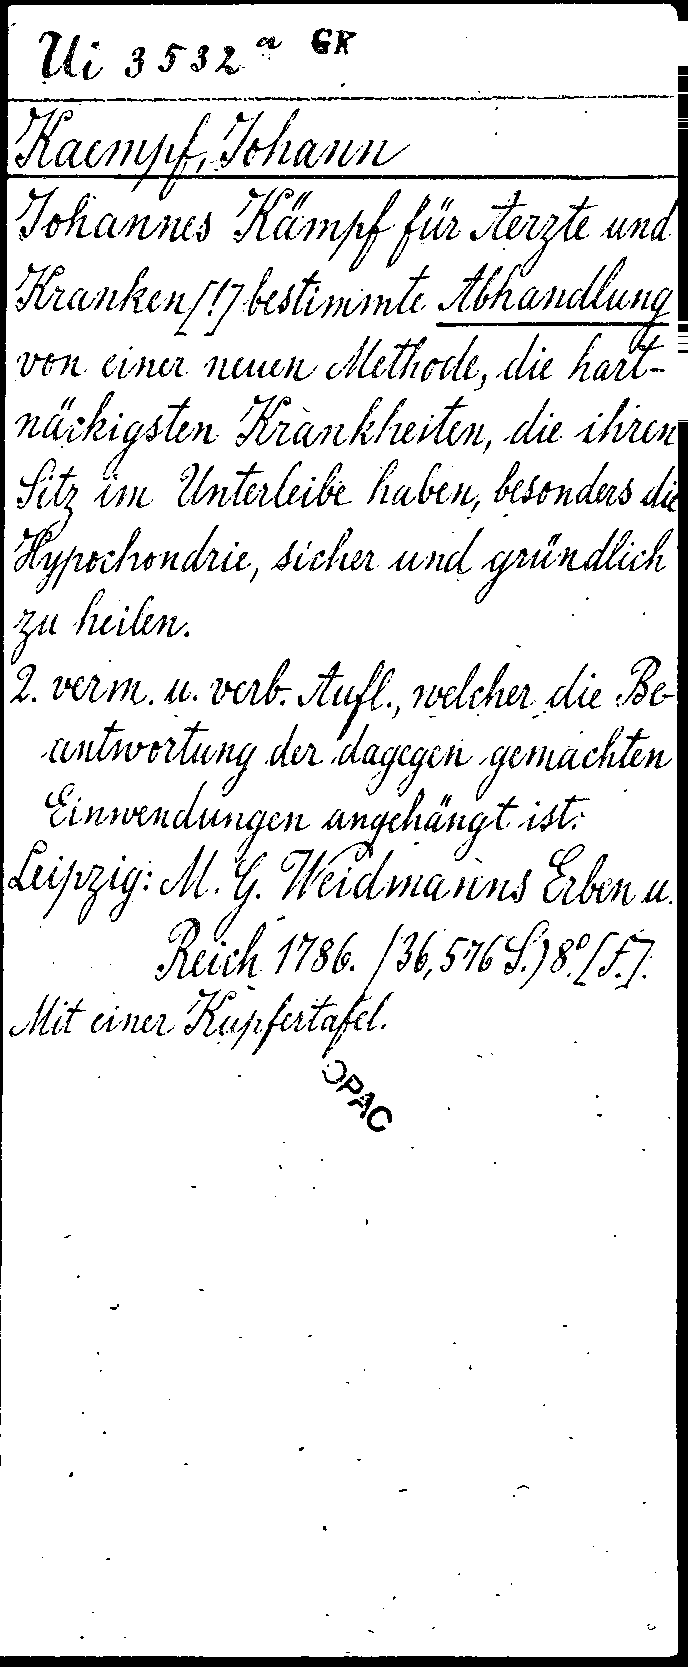 Ui 3532ª GK
Kaempf, Johann
Johannes Kämpf für Aerzte und
Kranken [!] bestimmte Abhandlung
von einer neuen Methode, die hart-
näckigsten Krankheiten, die ihren
Sitz im Unterleibe haben, besonders die
Hypochondrie, sicher und gründlich
zu heilen.
2. verm. u. verb. Aufl., welcher die Be-
antwortung der dagegen gemachten
Einwendungen angehängt ist.
Leipzig: M. G. Weidmanns Erben u.
Reich 1786. (36, 576 S.) 8º. [f.].
Mit einer Kupfertafel.
OPAC